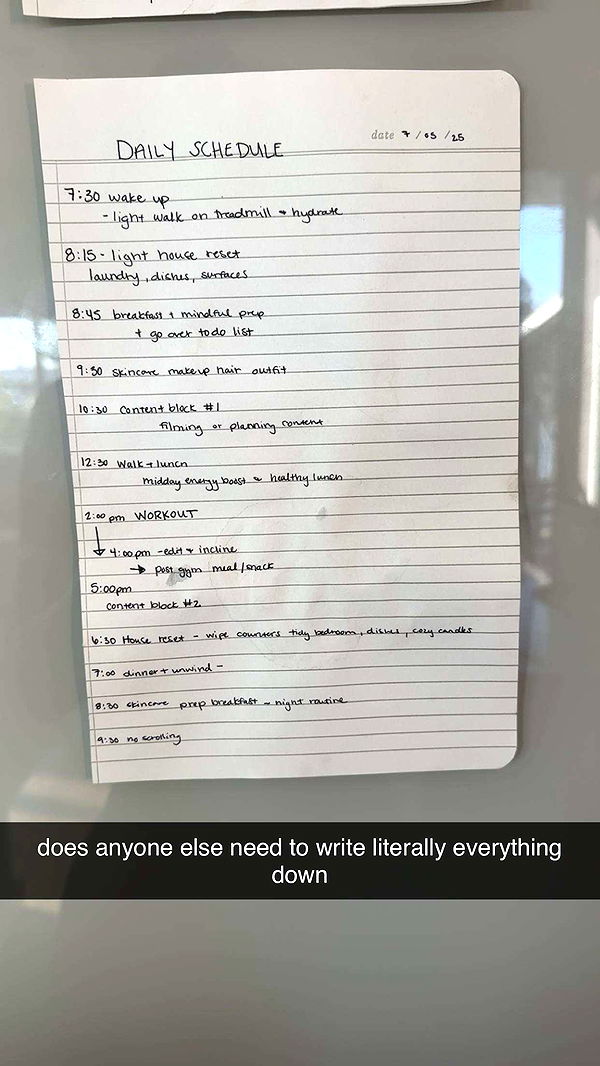 DAILY SCHEDULE
date 7 / 05 / 25
7:30 wake up
- light walk on treadmill + hydrate
8:15 - light house reset
laundry, dishes, surfaces
8:45 breakfast + mindful prep
+ go over to do list
9:30 skincare makeup hair outfit
10:30 content block #1
filming or planning content
12:30 walk + lunch
midday energy boost ~ healthy lunch
2:00 pm WORKOUT
4:00pm - edit + incline
→ post gym meal/snack
5:00pm
content block #2
6:30 House reset - wipe counters tidy bedroom, dishes, cozy candles
7:00 dinner + unwind -
8:30 skincare prep breakfast ~ night routine
9:30 no scrolling
does anyone else need to write literally everything
down